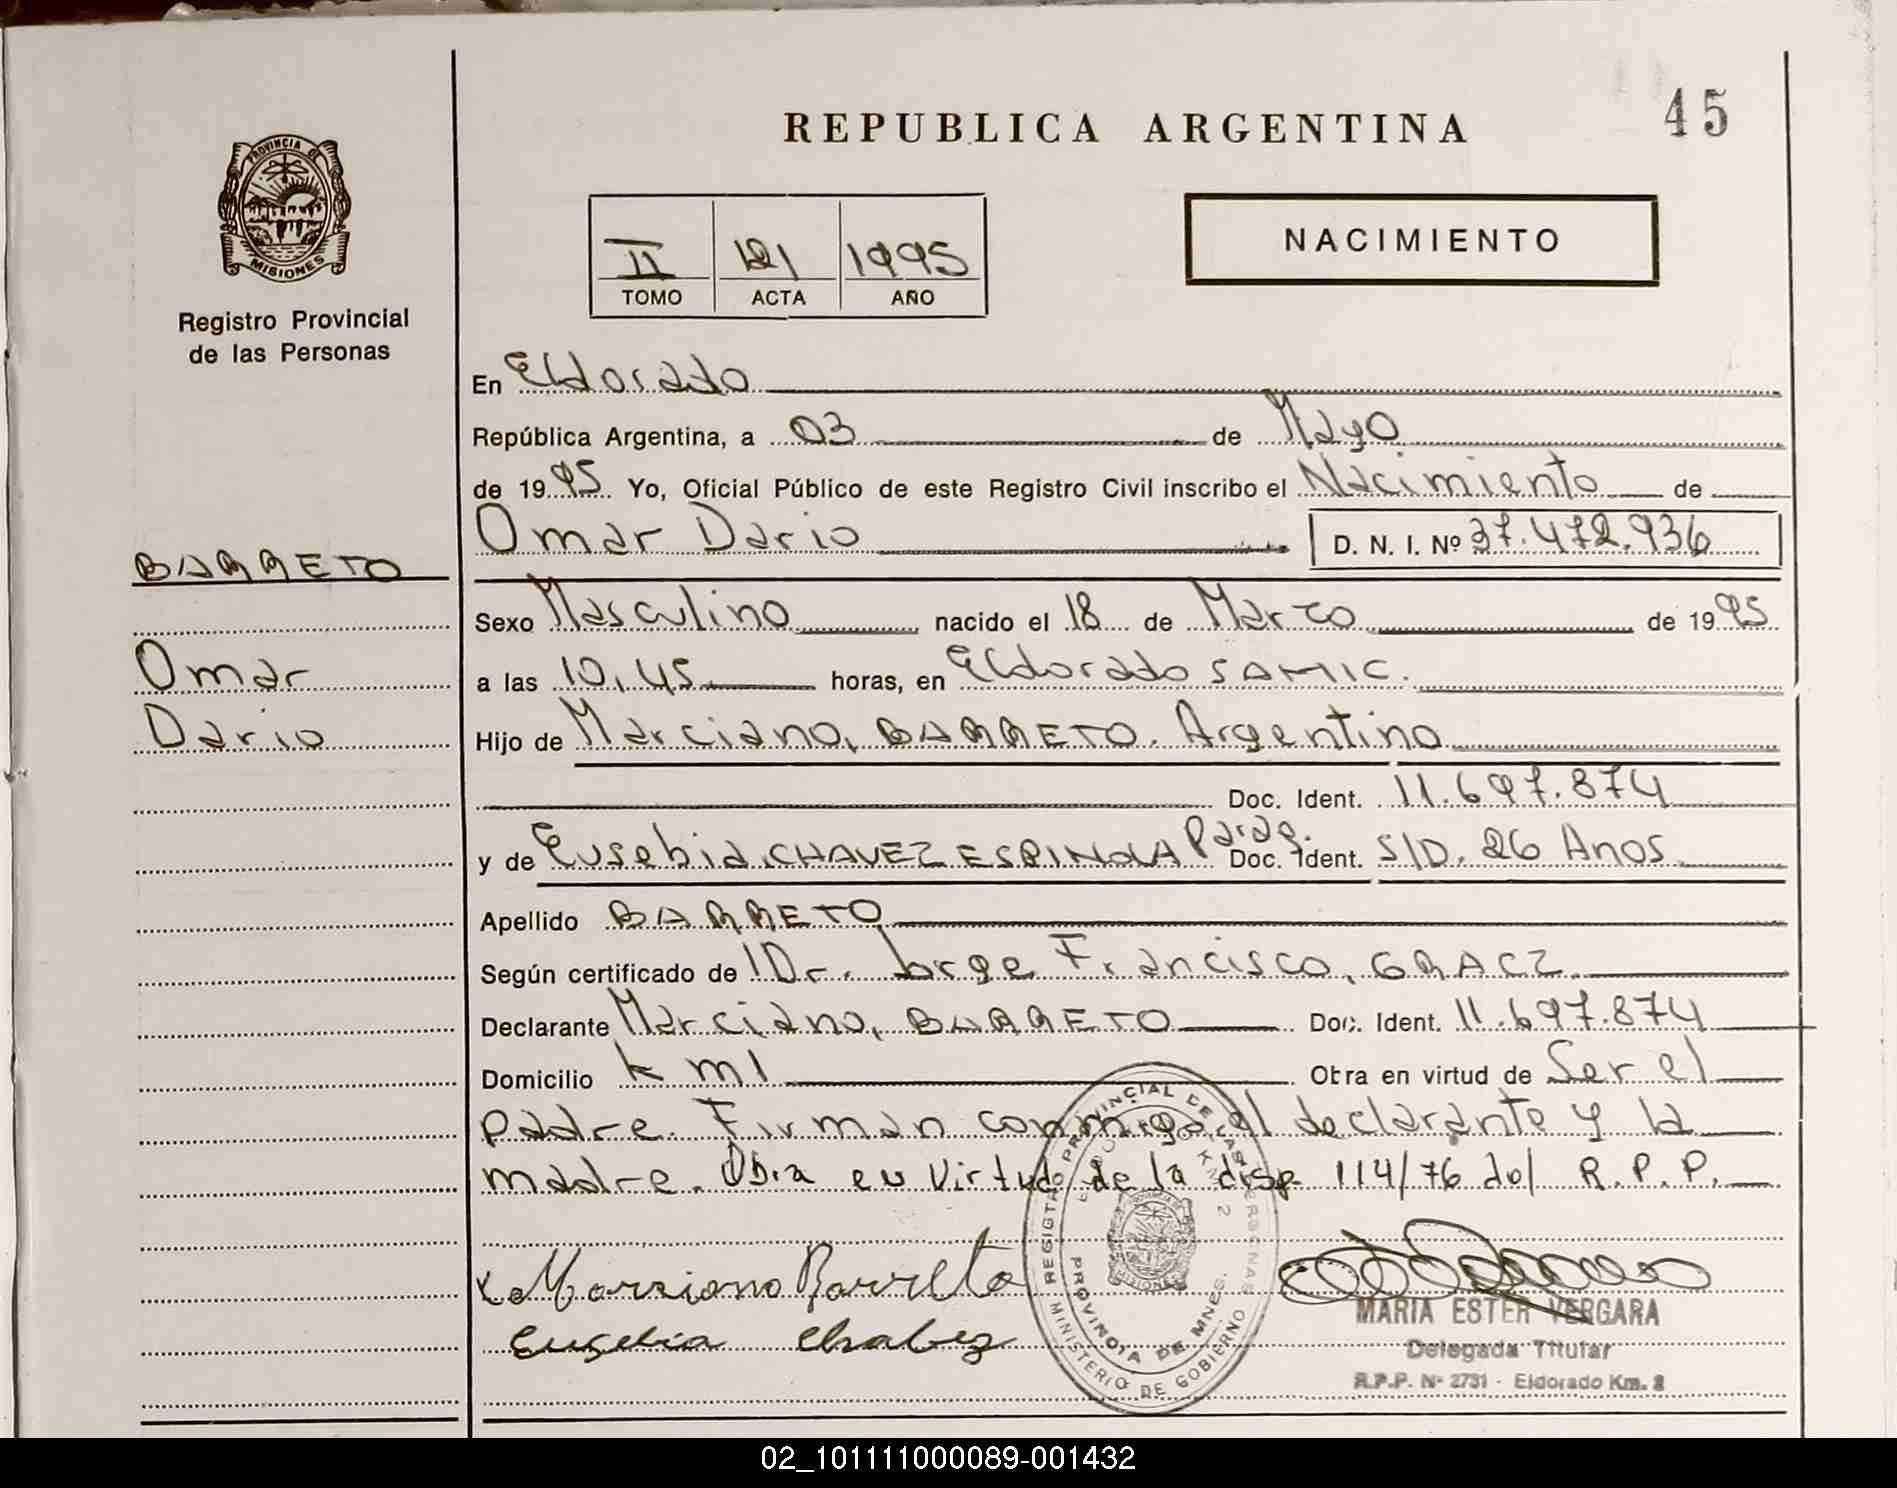 45
REPUBLICA ARGENTINA
PROVINCIA DE
MISIONES
Registro Provincial
de las Personas
II 121 1995
TOMO ACTA AÑO
NACIMIENTO
En Eldorado
República Argentina, a 03 de Mayo
de 1995. Yo, Oficial Público de este Registro Civil inscribo el Nacimiento de
Omar Dario D. N. I. Nº 37.472.936
BARRETO
Omar
Dario
Sexo Masculino nacido el 18 de Marzo de 1995
a las 10,45 horas, en Eldorado SAMIC.
Hijo de Marciano, BARRETO. Argentino
Doc. Ident. 11.697.874
y de Eusebia, CHAVEZ ESPINOLA Parag. Doc. Ident. S/D. 26 Anos
Apellido BARRETO
Según certificado de Dr. Jorge Francisco, GRACZ
Declarante Marciano, BARRETO Doc. Ident. 11.697.874
Domicilio km 1 Obra en virtud de Ser el
padre. Firman conmigo el declarante y la
madre. Obra en virtud de la disp. 114/76 del R.P.P.
x Marziano Barreto
Eusebia Chabez
REGISTRO PROVINCIAL DE LAS PERSONAS
MINISTERIO DE GOBIERNO
PROVINCIA DE MNES.
MISIONES
MARIA ESTER VERGARA
Delegada Titular
R.P.P. Nº 2731 - Eldorado Km. 2
02_101111000089-001432